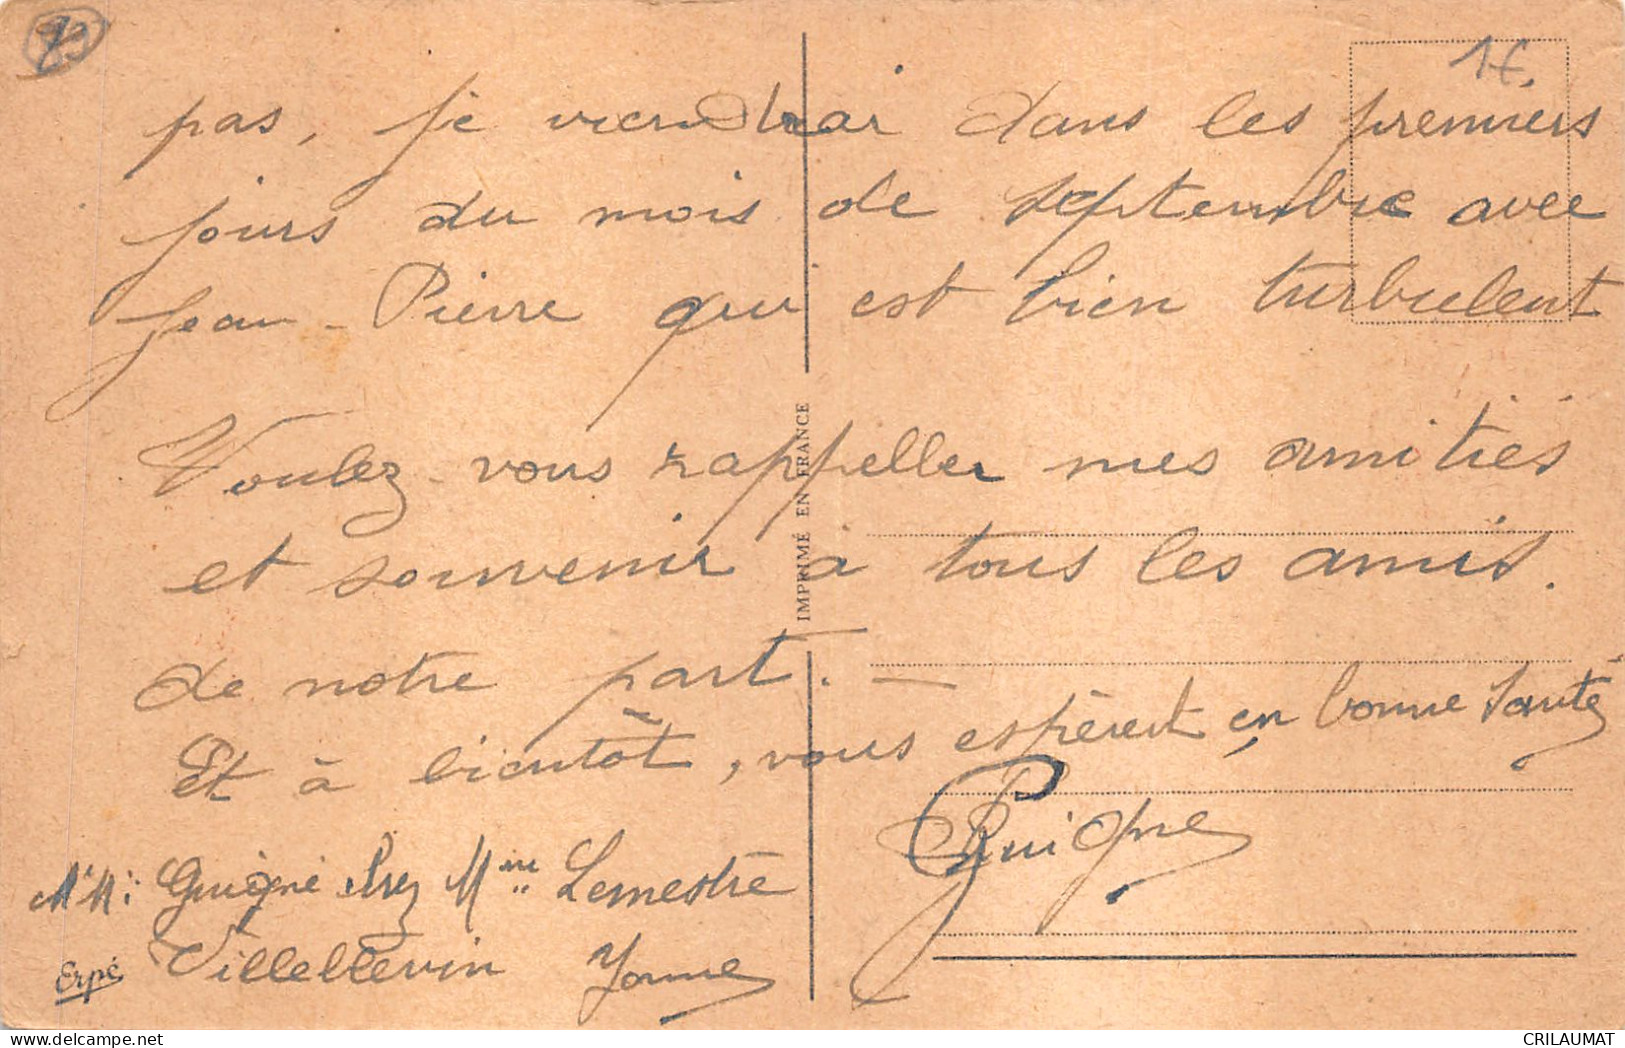 1€
pas, je viendrai dans les premiers
jours du mois de septembre avec
Jean-Pierre qui est bien turbulent
Voulez-vous rappeller mes amitiés
et souvenir à tous les amis.
de notre part. —
Et à bientôt, vous espèrent en bonne santé
Guigne
Guigné chez Mme Lemestre
Villeblevin Yonne
IMPRIMÉ EN FRANCE
Erpé
CRILAUMAT